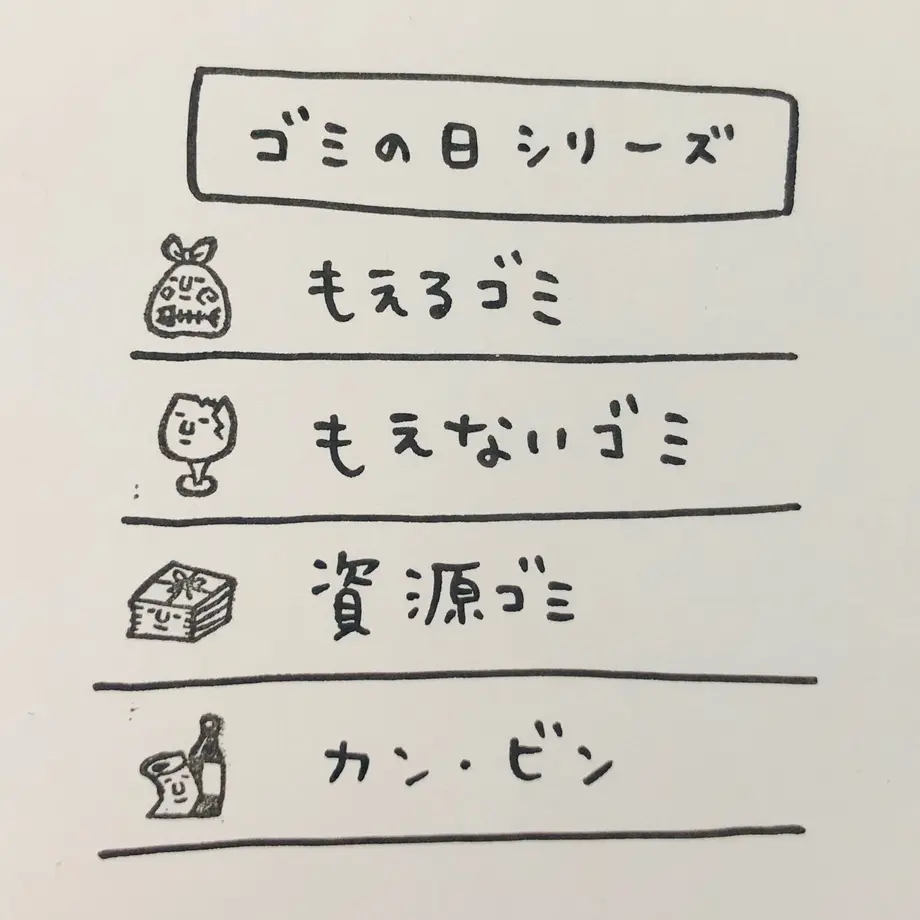 ゴミの日シリーズ
もえるゴミ
もえないゴミ
資源ゴミ
カン・ビン